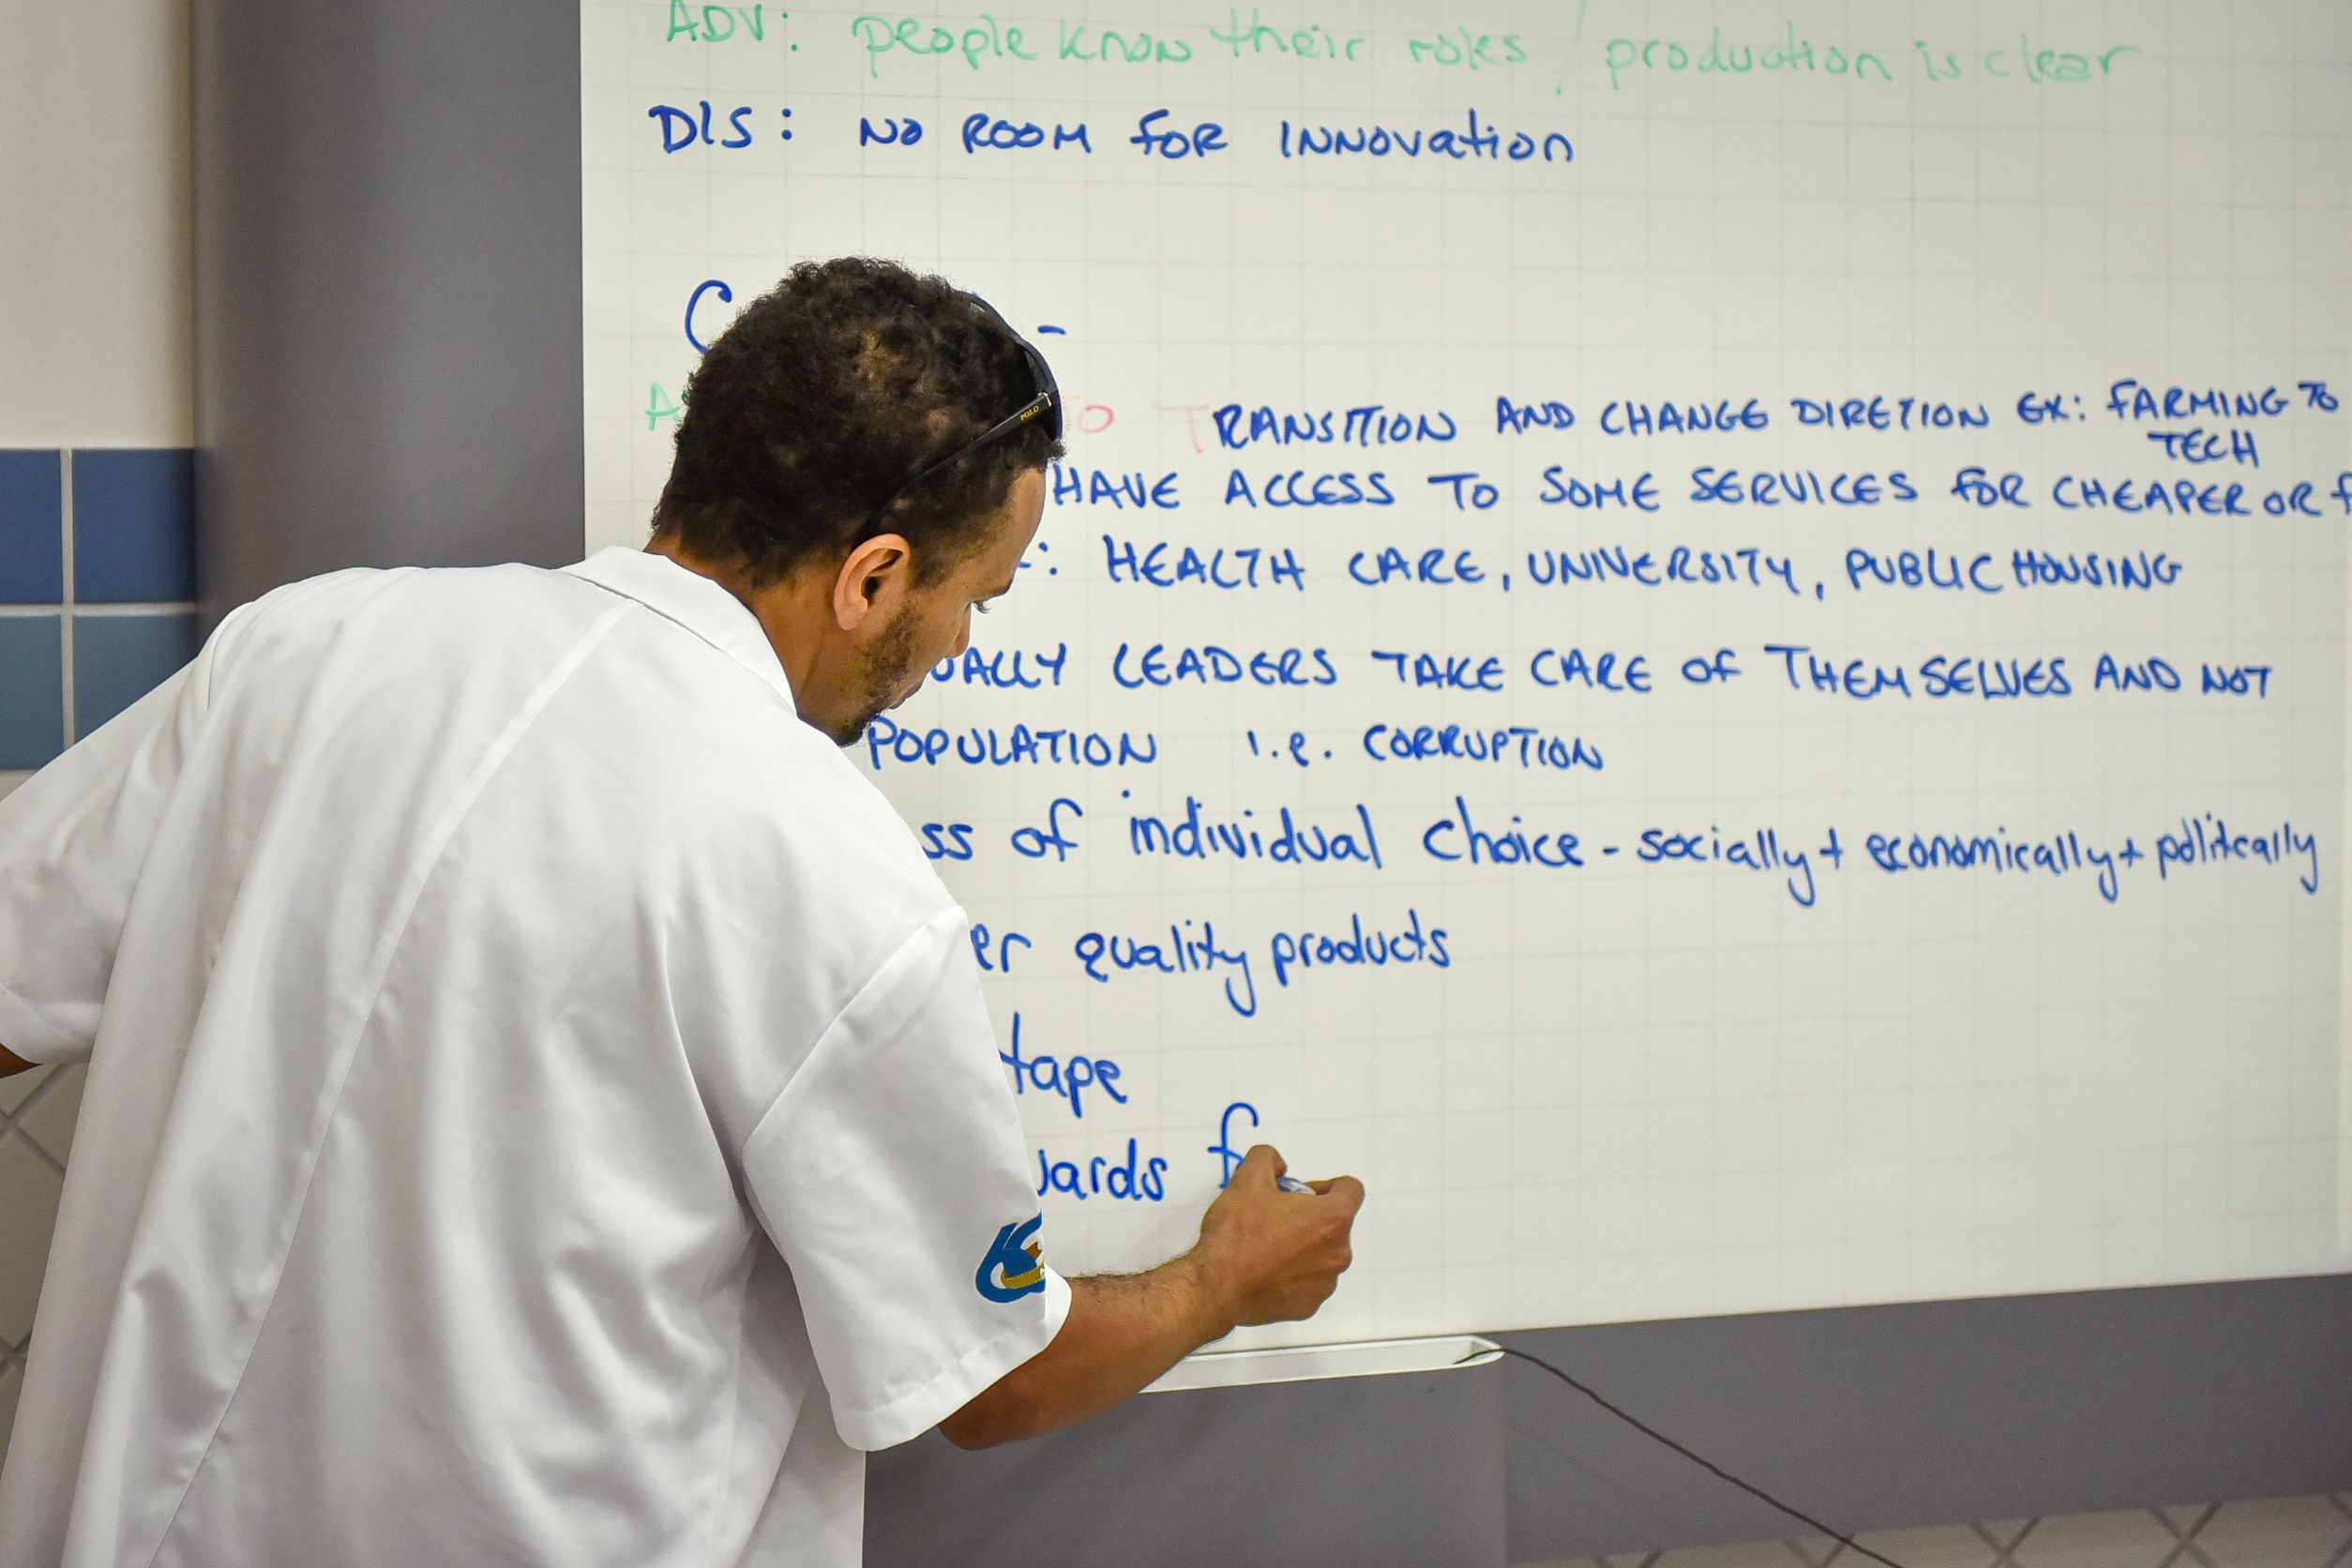 ADV: people know their roles / production is clear
DIS: NO ROOM FOR INNOVation
C -
A TO TRANSITION AND CHANGE DIRETION EX: FARMING TO
TECH
HAVE ACCESS TO SOME SERVICES FOR CHEAPER OR f
: HEALTH CARE, UNIVERSITY, PUBLIC HOUSING
UALLY LEADERS TAKE CARE OF THEMSELVES AND NOT
POPULATION i.e. CORRUPTION
ss of individual choice - socially + economically + politcally
er quality products
tape
wards f
POLO